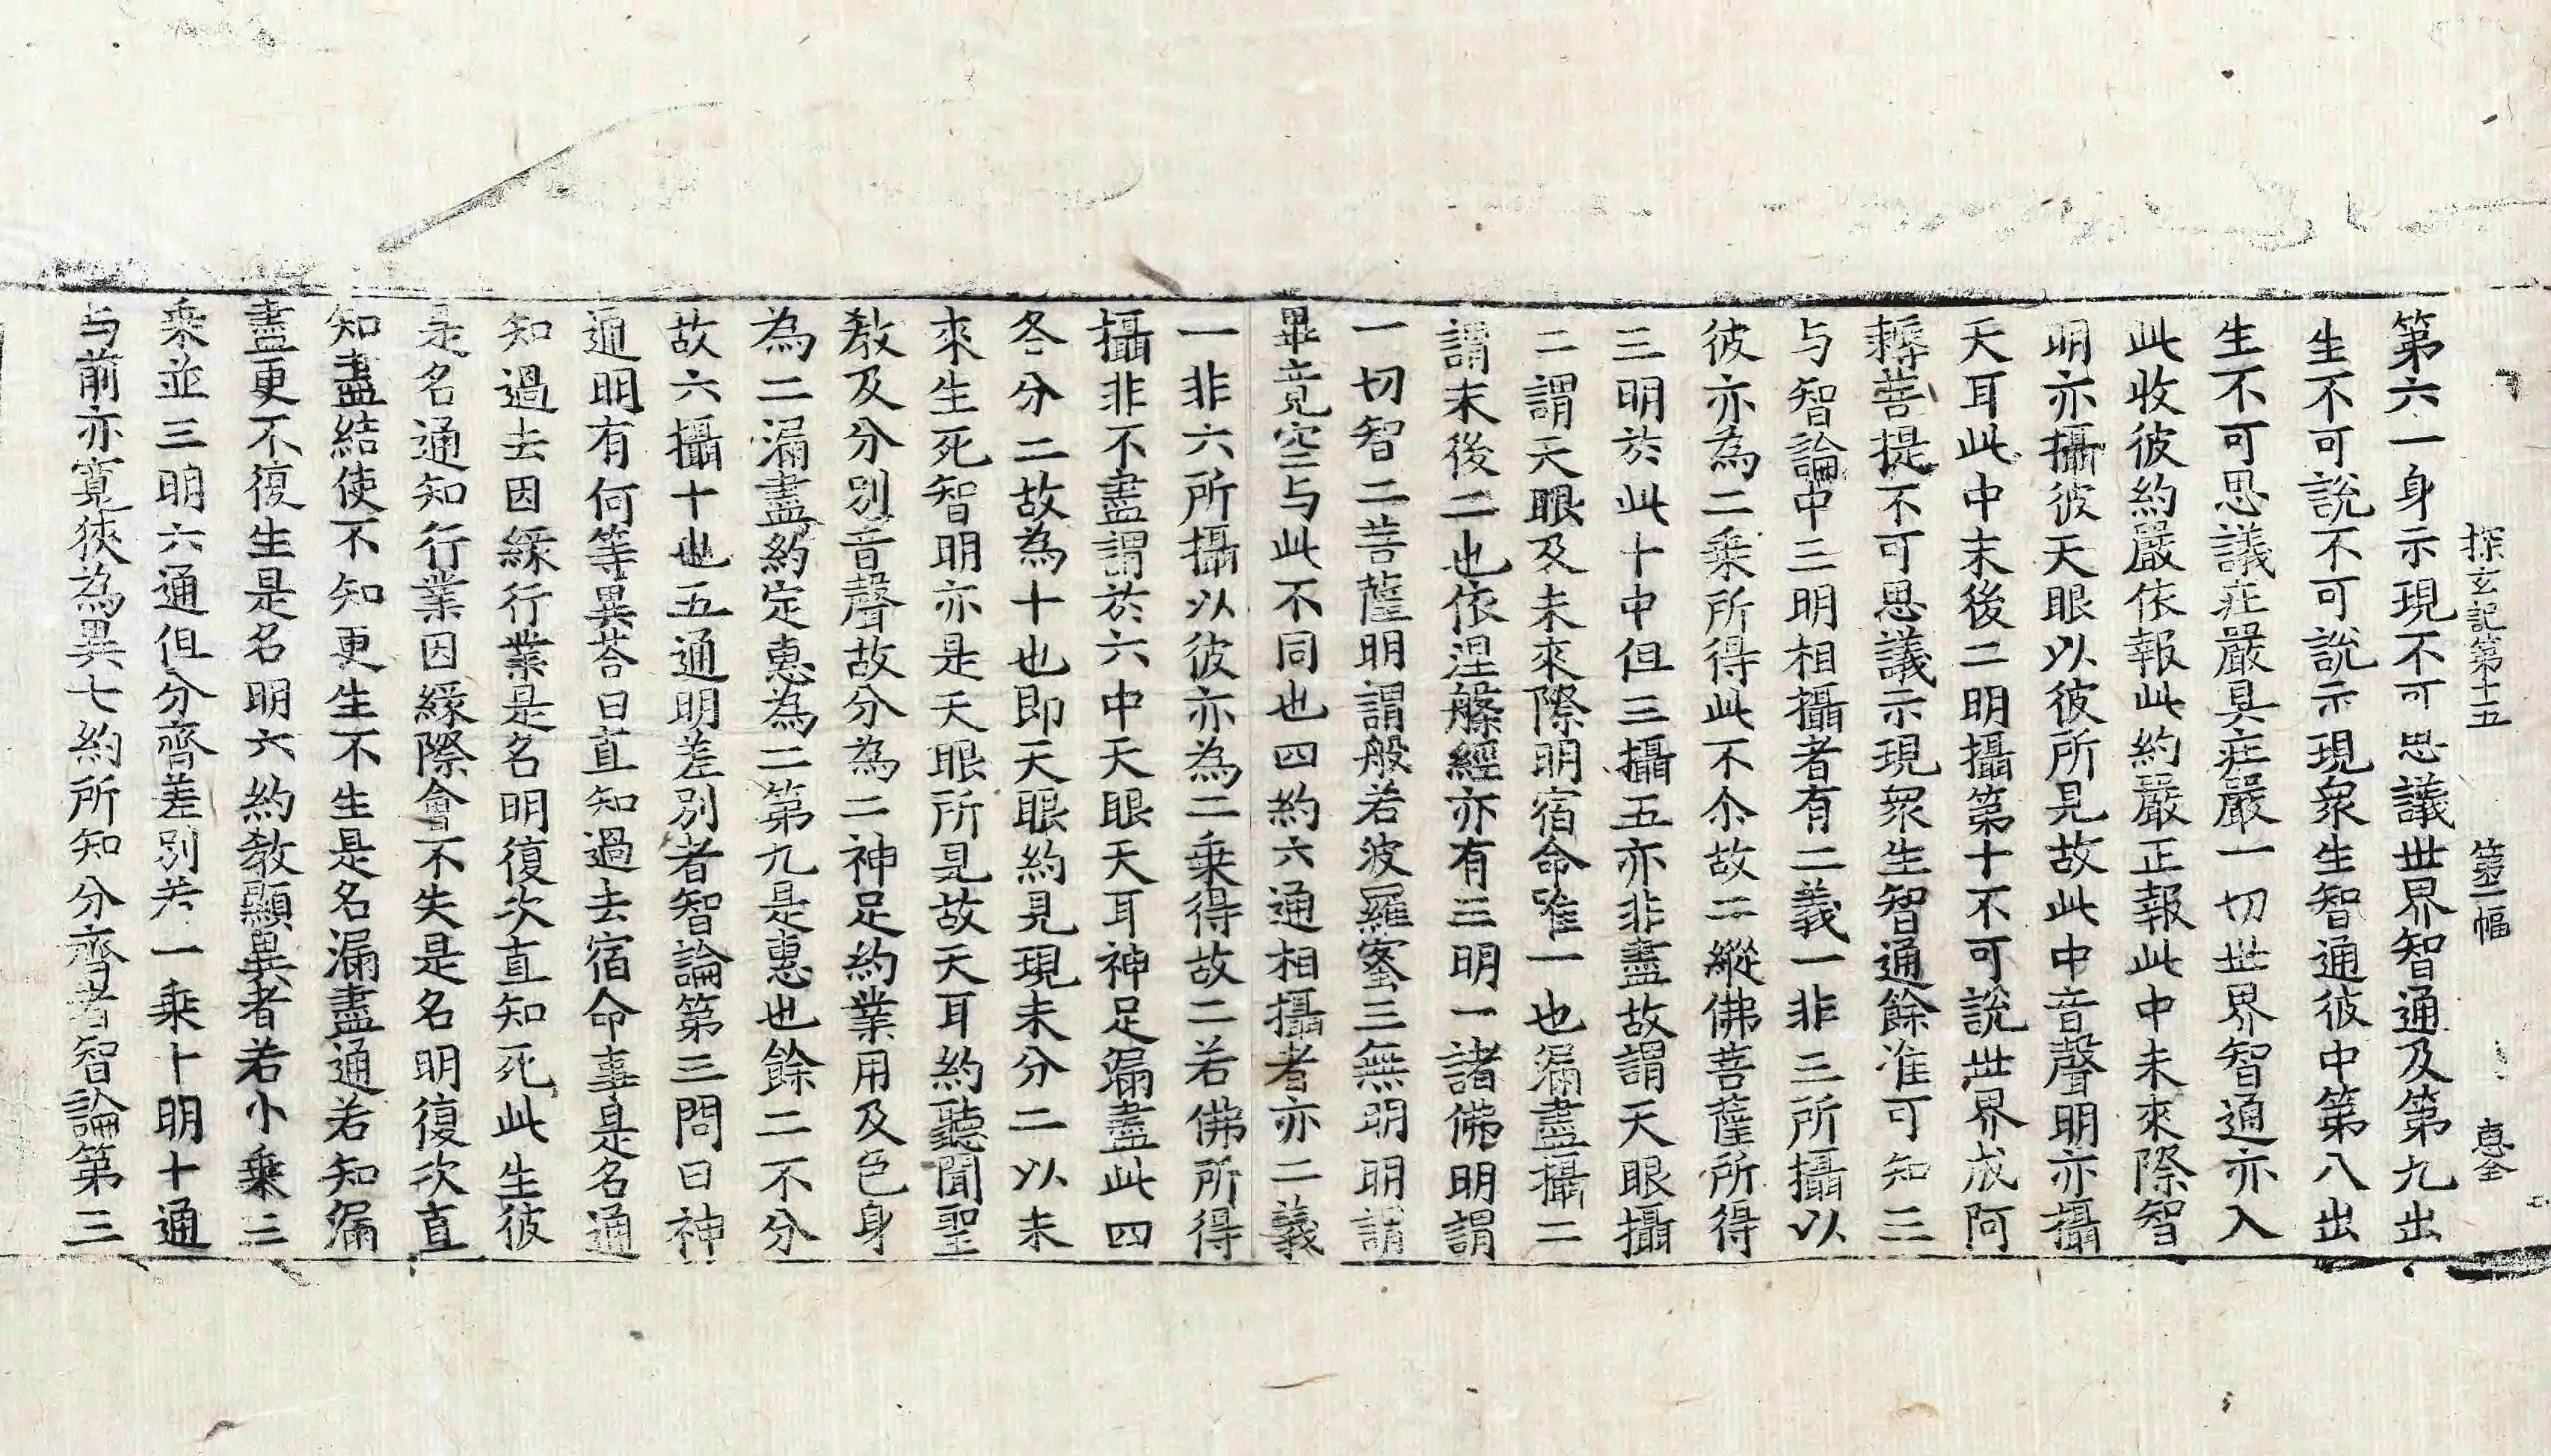 探玄記第十五 第二幅 惠全
第六一身示現不可思議世界智通及第九出
生不可說不可說示現衆生智通彼中第八出
生不可思議莊嚴具莊嚴一切世界智通亦入
此收彼約嚴依報此約嚴正報此中未來際智
明亦攝彼天眼以彼所見故此中音聲明亦攝
天耳此中末後二明攝第十不可說世界成阿
耨菩提不可思議示現衆生智通餘准可知三
与智論中三明相攝者有二義一非三所攝以
彼亦為二乘所得此不尒故二縱佛菩薩所得
三明於此十中但三攝五亦非盡故謂天眼攝
二謂天眼及未來際明宿命唯一也漏盡攝二
謂末後二也依涅槃經亦有三明一諸佛明謂
一切智二菩薩明謂般若波羅蜜三無明明謂
畢竟空与此不同也四約六通相攝者亦二義
一非六所攝以彼亦為二乘得故二若佛所得
攝非不盡謂於六中天眼天耳神足漏盡此四
各分二故為十也即天眼約見現未分二以未
來生死智明亦是天眼所見故天耳約聽聞聖
教及分別音聲故分為二神足約業用及色身
為二漏盡約定惠為二第九是惠也餘二不分
故六攝十也五通明差別者智論第三問曰神
通明有何等異荅曰直知過去宿命事是名通
知過去因緣行業是名明復次直知死此生彼
是名通知行業因緣際會不失是名明復次直
知盡結使不知更生不生是名漏盡通若知漏
盡更不復生是名明六約教顯異者若小乘三
乘並三明六通但分齊差別若一乘十明十通
与前亦寬狹為異七約所知分齊者智論第三